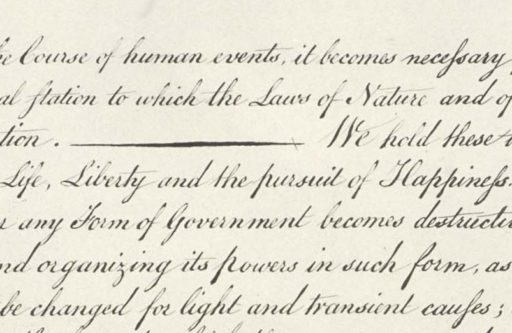 he Course of human events, it becomes neceſsary
al ſtation to which the Laws of Nature and of
tion. ———— We hold these
Life, Liberty and the pursuit of Happineſs.
r any Form of Government becomes destructi
nd organizing its powers in such form, as
be changed for light and transient cauſes;